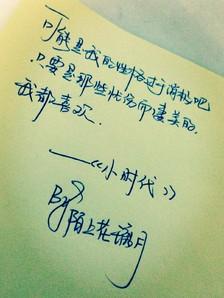 可能是我的性格过于消极吧
只要是那些忧伤而凄美的
我都喜欢.
——《小时代》
By
陌上花痛月